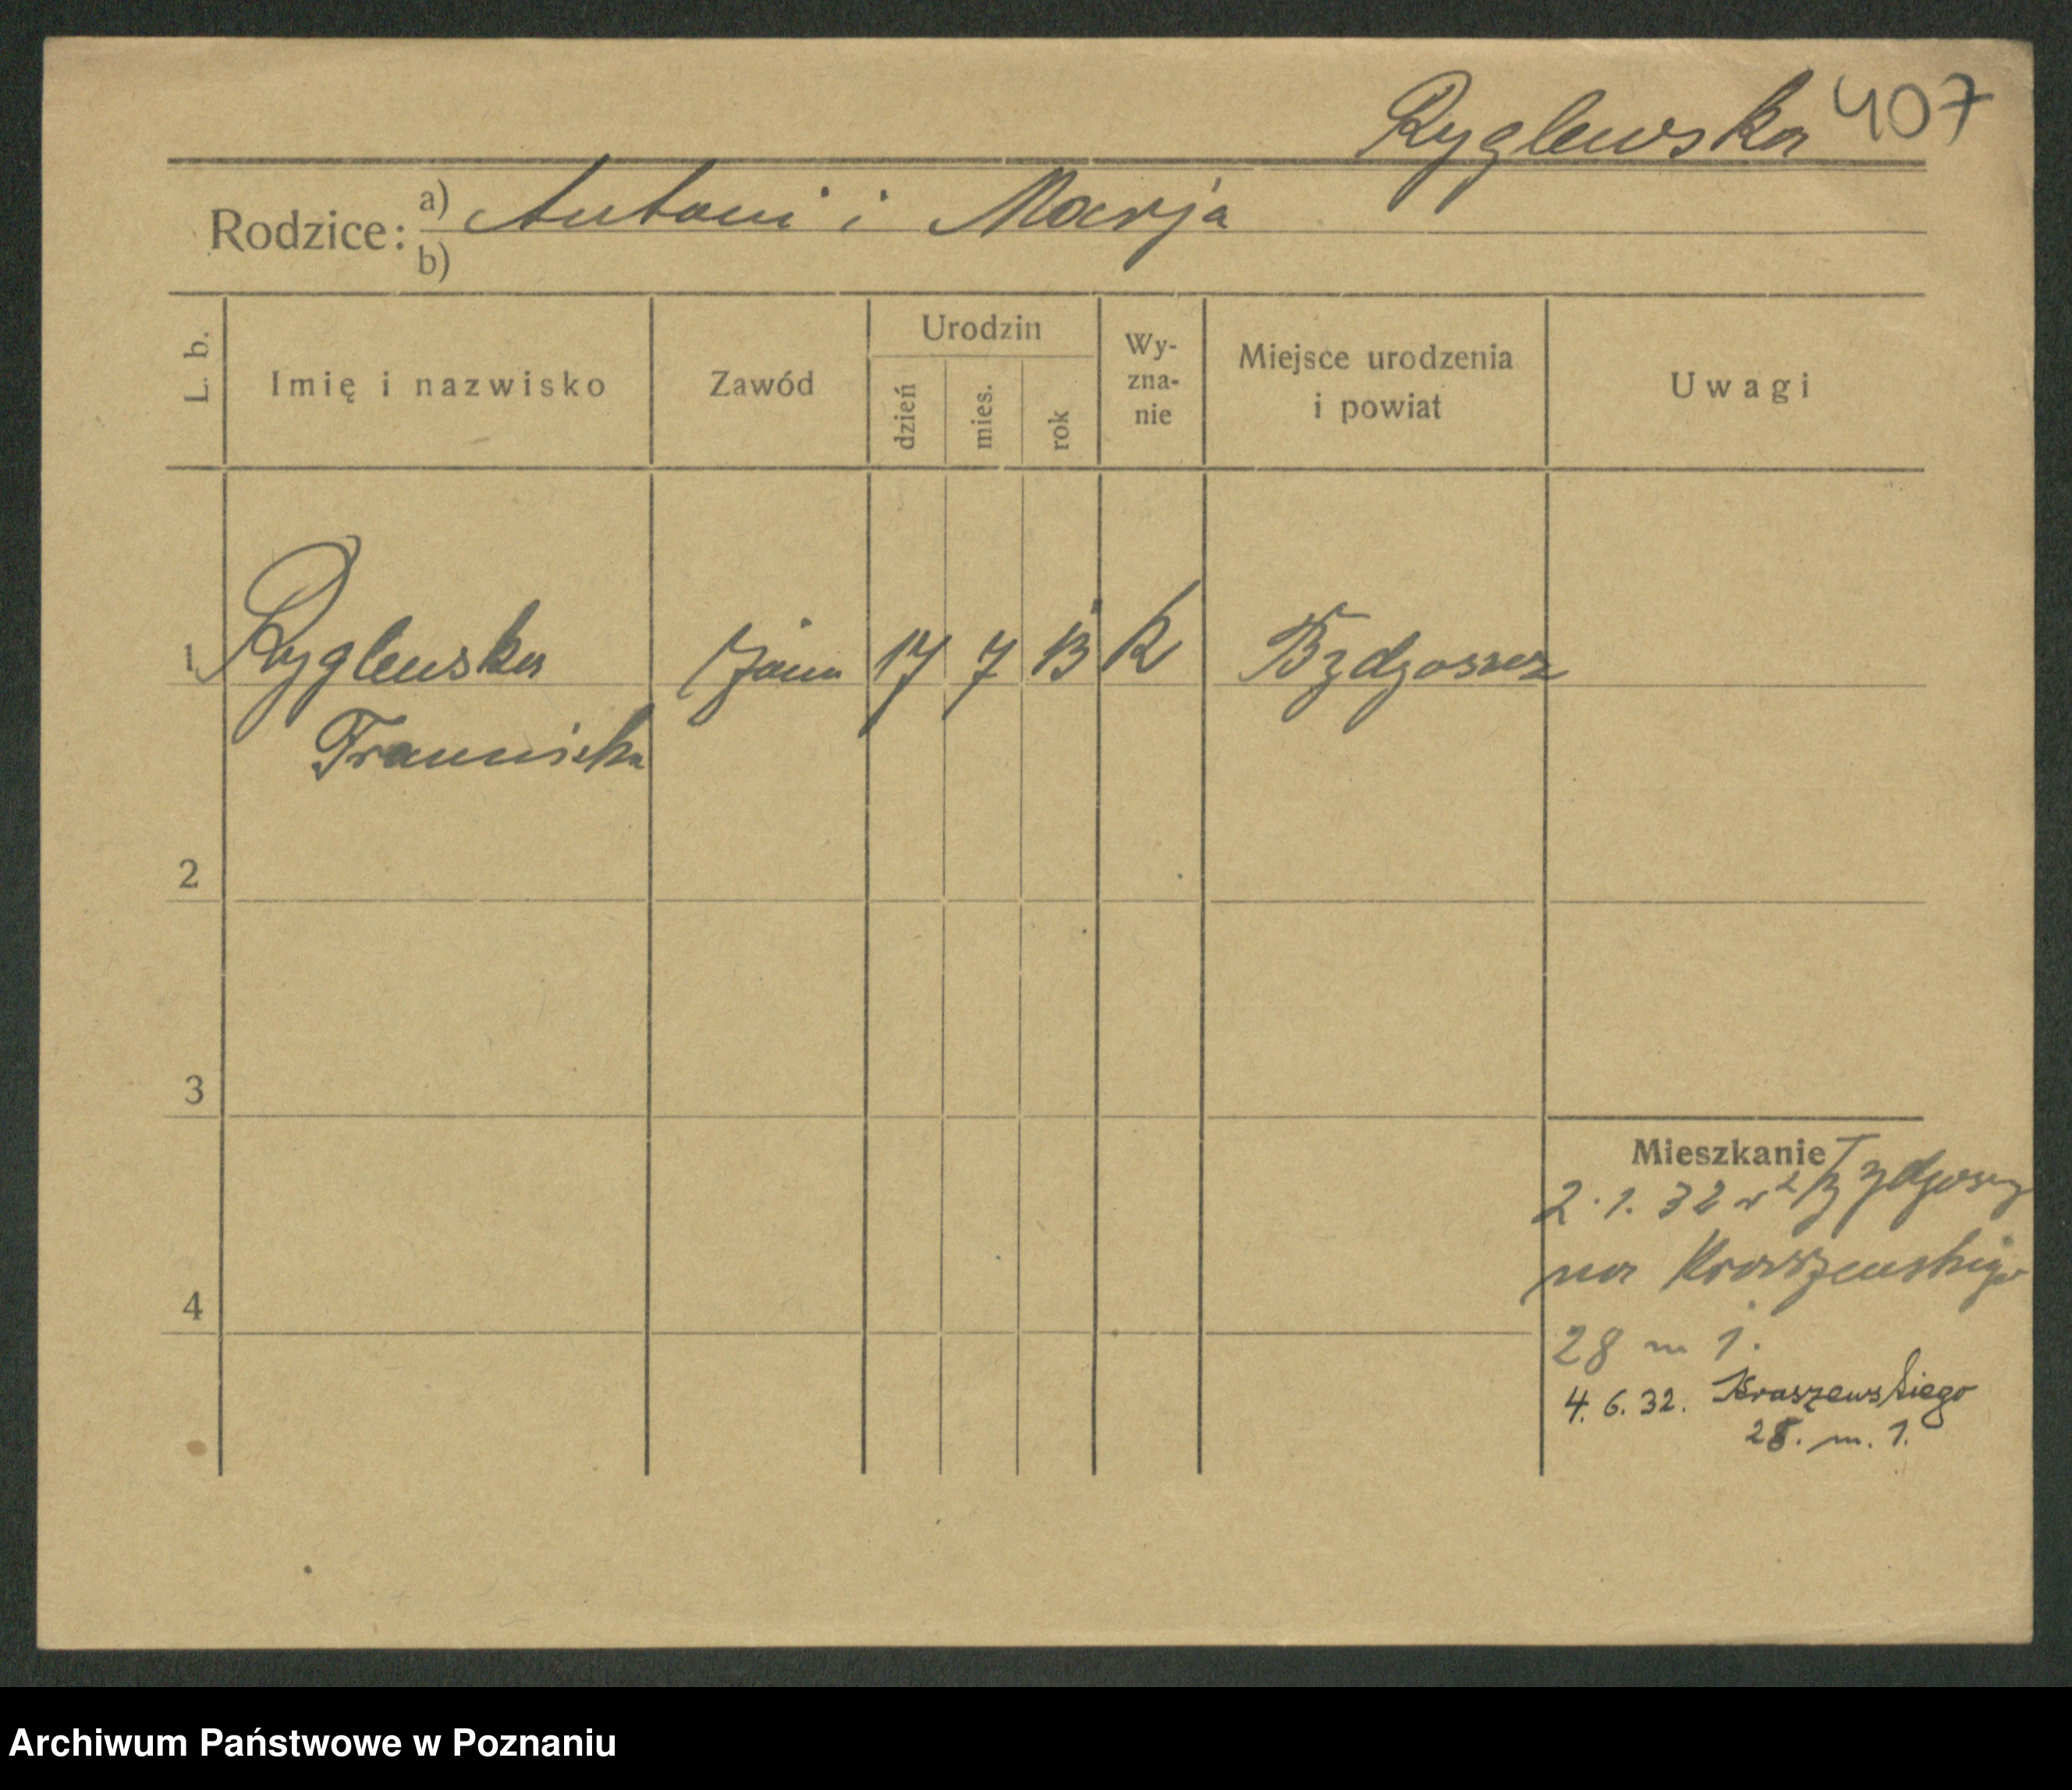 Ryglewska 407
Rodzice: a) Antoni i Marja
b)
L. b.
Imię i nazwisko
Zawód
Urodzin
dzień
mies.
rok
Wy-
zna-
nie
Miejsce urodzenia
i powiat
Uwagi
1 Ryglewska 17 7 13 K Bydgoszcz
Franciszka
2
3
4
Mieszkanie
2.1.32 z Bydgoszczy
na Kraszewskiego
28 m 1.
4. 6. 32. Kraszewskiego
28. m. 1.
Archiwum Państwowe w Poznaniu